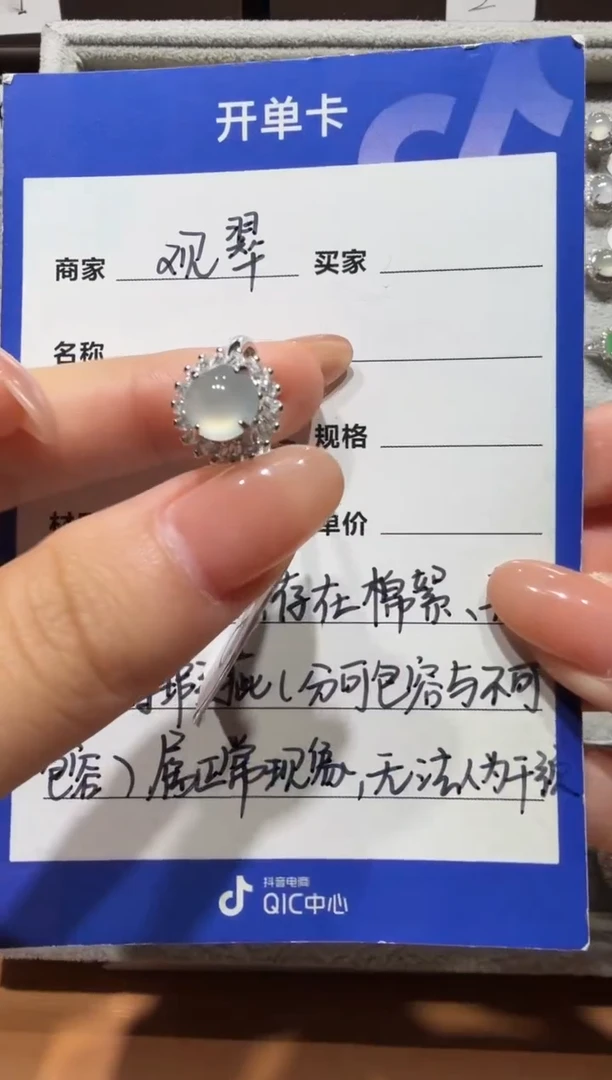 开单卡
商家 观翠 买家
名称
规格
单价
存在棉絮、
(分可包容与不可
包容)属正常现象,无法人为干预
抖音电商
QIC中心